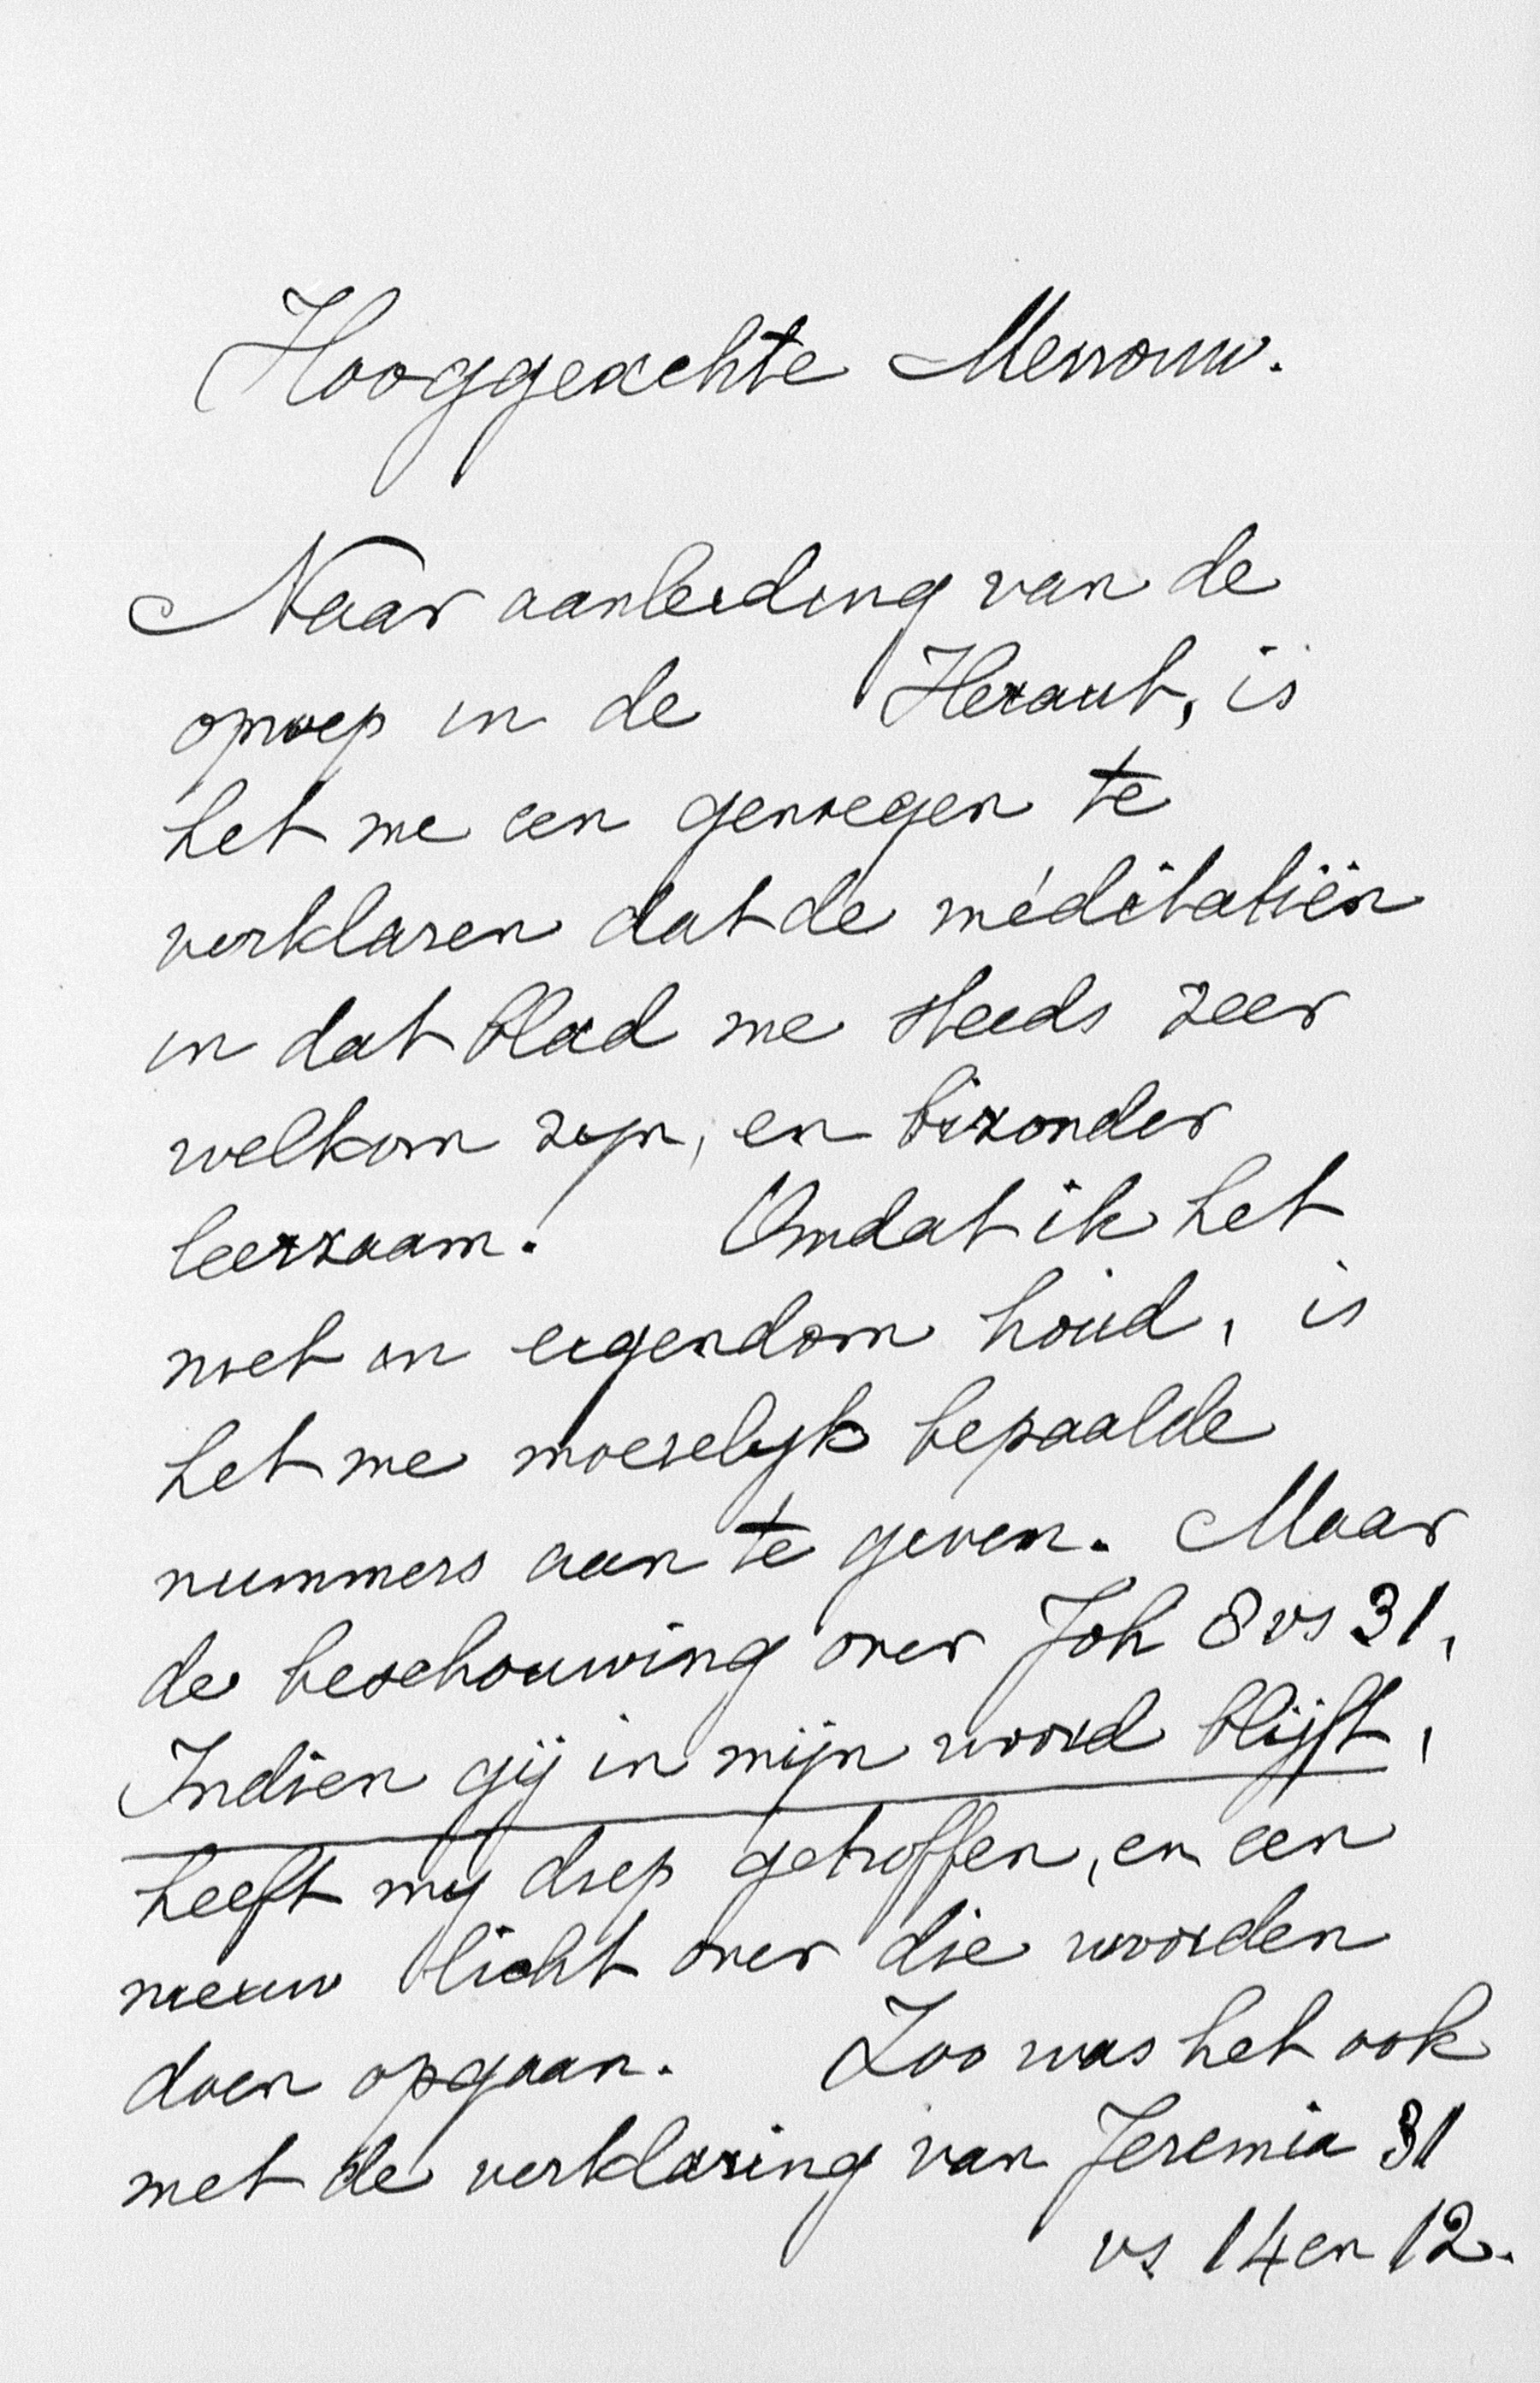 Hooggeachte Mevrouw.
Naar aanleiding van de
oproep in de Heraut, is
het me een genoegen te
verklaren dat de méditatiën
in dat blad me steeds zeer
welkom zyn, en bizonder
leerzaam! Omdat ik het
niet in eigendom houd, is
het me moeielyk bepaalde
nummers aan te geven. Maar
de beschouwing over Joh 8 vs 31,
Indien gij in mijn woord blijft,
heeft my diep getroffen, en een
nieuw licht over die woorden
doen opgaan. Zoo was het ook
met de verklaring van Jeremia 31
vs 14 en 12.